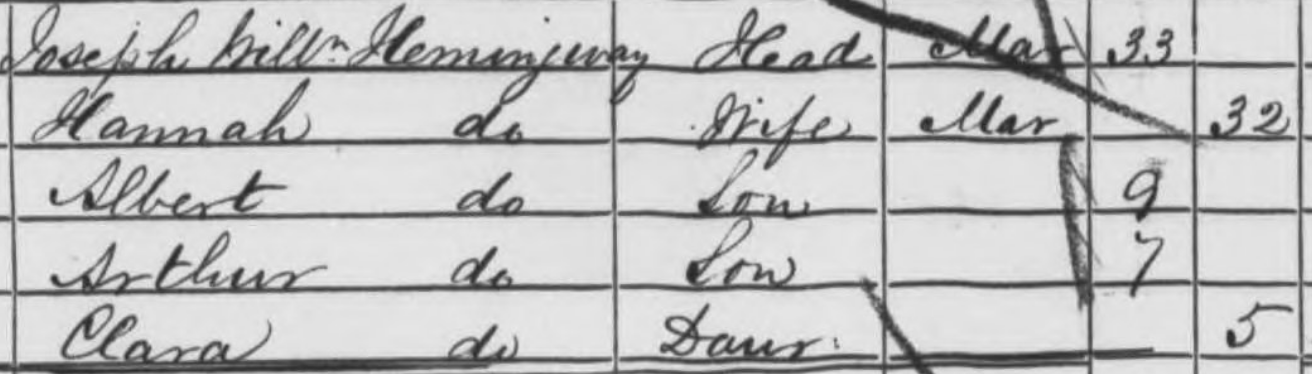 Joseph Willm Hemingway Head Mar 33
Hannah do Wife Mar 32
Albert do Son 9
Arthur do Son 7
Clara do Daur. 5